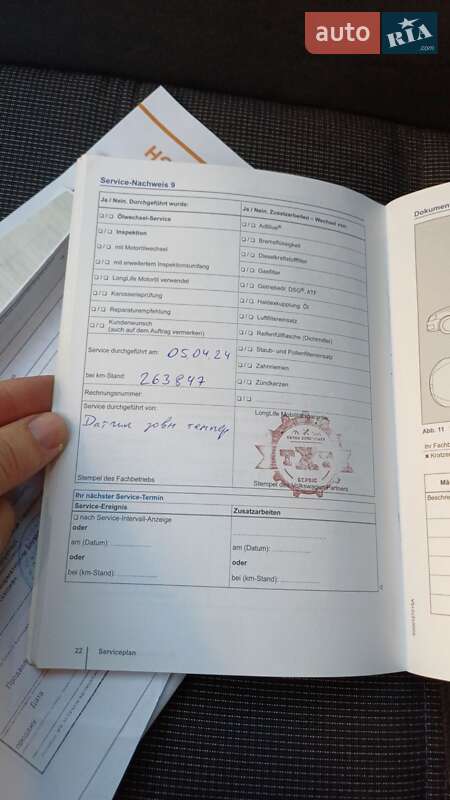 auto RIA .com
Service-Nachweis 9
Ja / Nein, Durchgeführt wurde:
Ja / Nein, Zusatzarbeiten – Wechsel von:
❑ / ❑ Ölwechsel-Service
❑ / ❑ AdBlue®
❑ / ❑ Inspektion
❑ / ❑ Bremsflüssigkeit
❑ / ❑ mit Motorölwechsel
❑ / ❑ Dieselkraftstofffilter
❑ / ❑ mit erweitertem Inspektionsumfang
❑ / ❑ Gasfilter
❑ / ❑ LongLife Motoröl verwendet
❑ / ❑ Getriebeöl, DSG®, ATF
❑ / ❑ Karosserieprüfung
❑ / ❑ Haldexkupplung, Öl
❑ / ❑ Reparaturempfehlung
❑ / ❑ Luftfiltereinsatz
❑ / ❑ Kundenwunsch
(auch auf dem Auftrag vermerken)
❑ / ❑ Reifenfüllflasche (Dichtmittel)
❑ / ❑ Staub- und Pollenfiltereinsatz
Service durchgeführt am: 050424
❑ / ❑ Zahnriemen
bei km-Stand: 263847
❑ / ❑ Zündkerzen
Rechnungsnummer:
❑ / ❑
Service durchgeführt von:
LongLife Mobilitätsgarantie
Датчик зовн темпер
СЕРВІС
Stempel des Fachbetriebs
Stempel des Volkswagen Partners
Ihr nächster Service-Termin
Service-Ereignis
Zusatzarbeiten
❑ nach Service-Intervall-Anzeige
oder
am (Datum):
am (Datum):
oder
oder
bei (km-Stand):
bei (km-Stand):
22 Serviceplan
Dokumen
Abb. 11
Ihr Fachb
■ Kratzer
Mä
Beschrei
Дата